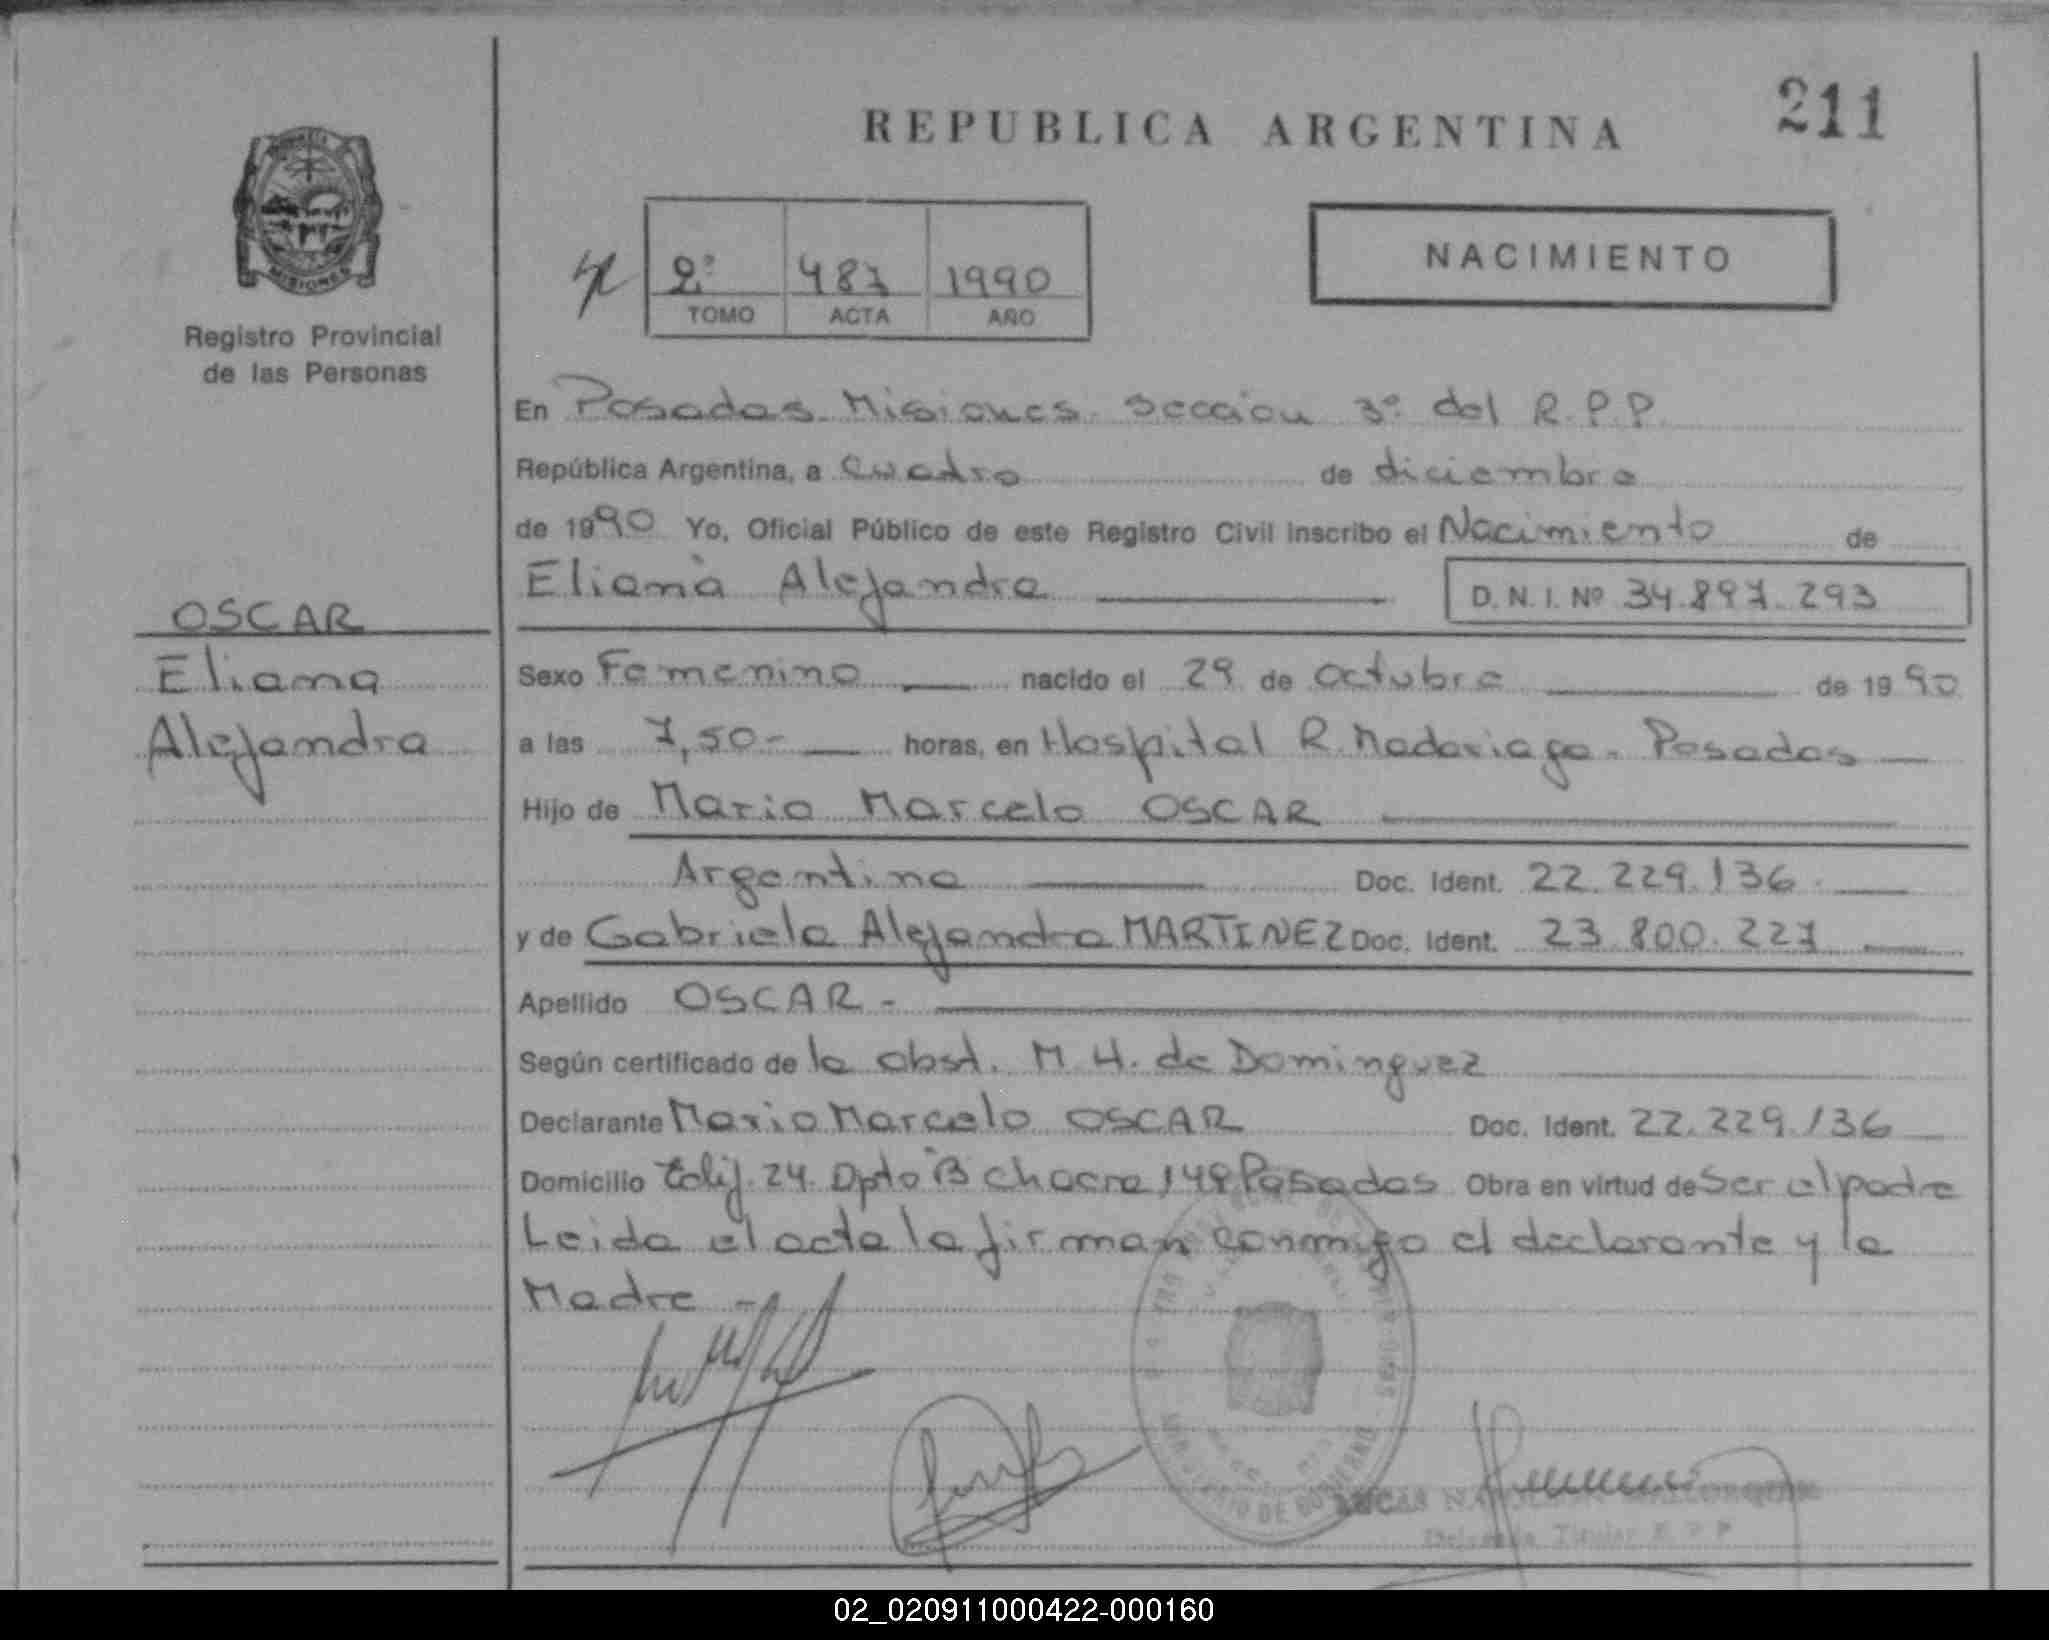 211
REPUBLICA ARGENTINA
NACIMIENTO
2º 487 1990
TOMO ACTA AÑO
MISIONES
Registro Provincial
de las Personas
En Posadas Misiones Seccion 3º del R.P.P.
República Argentina, a cuatro de diciembre
de 1990 Yo, Oficial Público de este Registro Civil inscribo el Nacimiento de
Eliana Alejandra D.N.I. Nº 34.897.293
OSCAR
Eliana
Alejandra
Sexo Femenino nacido el 29 de octubre de 1990
a las 7,50- horas, en Hospital R. Madariaga - Posadas
Hijo de Mario Marcelo OSCAR
Argentino Doc. Ident. 22.229.136
y de Gabriela Alejandra MARTINEZ Doc. Ident. 23.800.227
Apellido OSCAR -
Según certificado de la obst. M. H. de Dominguez
Declarante Mario Marcelo OSCAR Doc. Ident. 22.229.136
Domicilio Edif. 24. Dpto B chacra 148 Posadas Obra en virtud de Ser el padre
Leida el acta la firman conmigo el declarante y la
Madre -
MINISTERIO DE GOBIERNO
LUCAS
Titular R P P
02_020911000422-000160